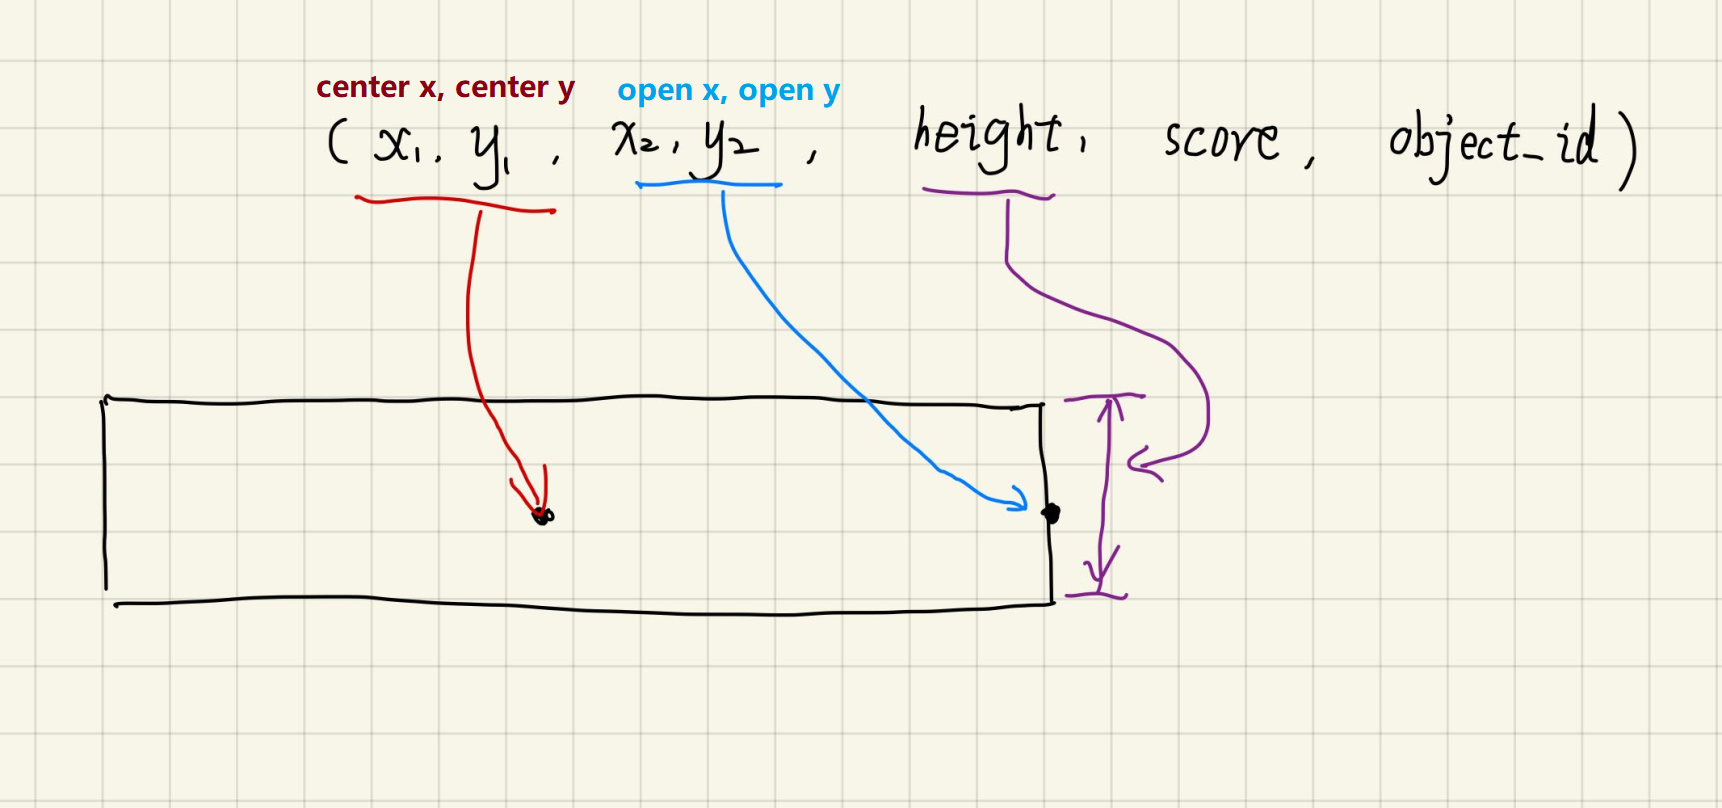 center x, center y open x, open y
(x₁, y₁, x₂, y₂, height, score, object_id)